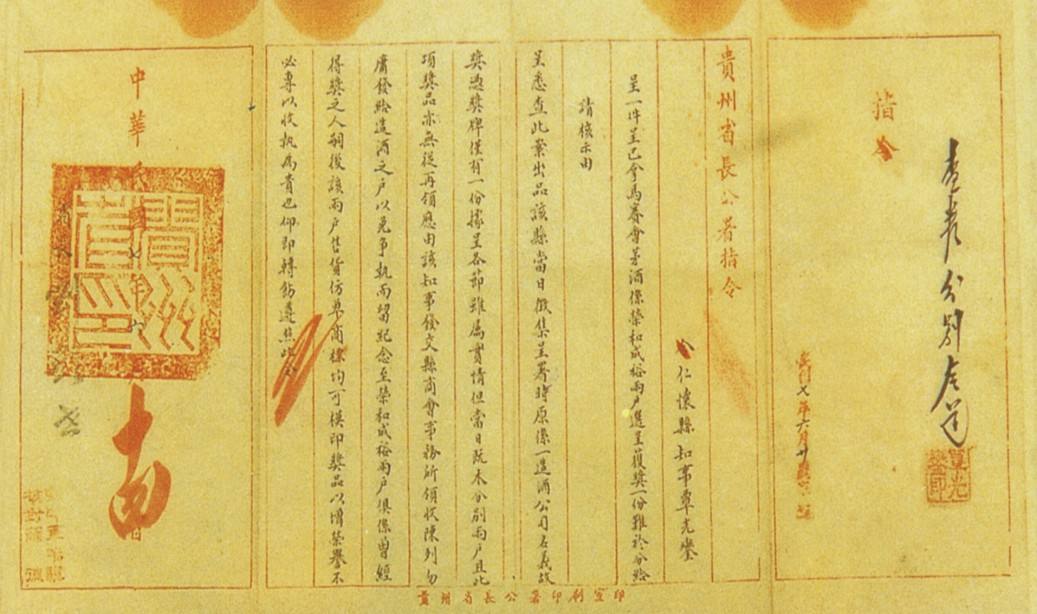 分別
覃光鑾印
指令
七年六月廿
貴州省長公署指令
令仁懷縣知事覃光鑾
呈一件呈巴拿馬賽會茅酒係榮和成裕兩戶選呈獲獎一份難於分給
請核示由
呈悉查此案出品該縣當日徵集呈署時原係一造酒公司名義故
獎憑獎牌僅有一份據呈各節雖屬實情但當日既未分別兩戶且此
項獎品亦無從再領應由該知事發交縣商會事務所領收陳列勿
庸發給造酒之戶以免爭執而留紀念至榮和成裕兩戶俱係曾經
得獎之人嗣後該兩戶售貨仿單商標均可模印獎品以增榮譽不
必專以收執為貴也仰即轉飭遵照此令
中華民國七年六
貴州省印
貴州省長公署印刷室印